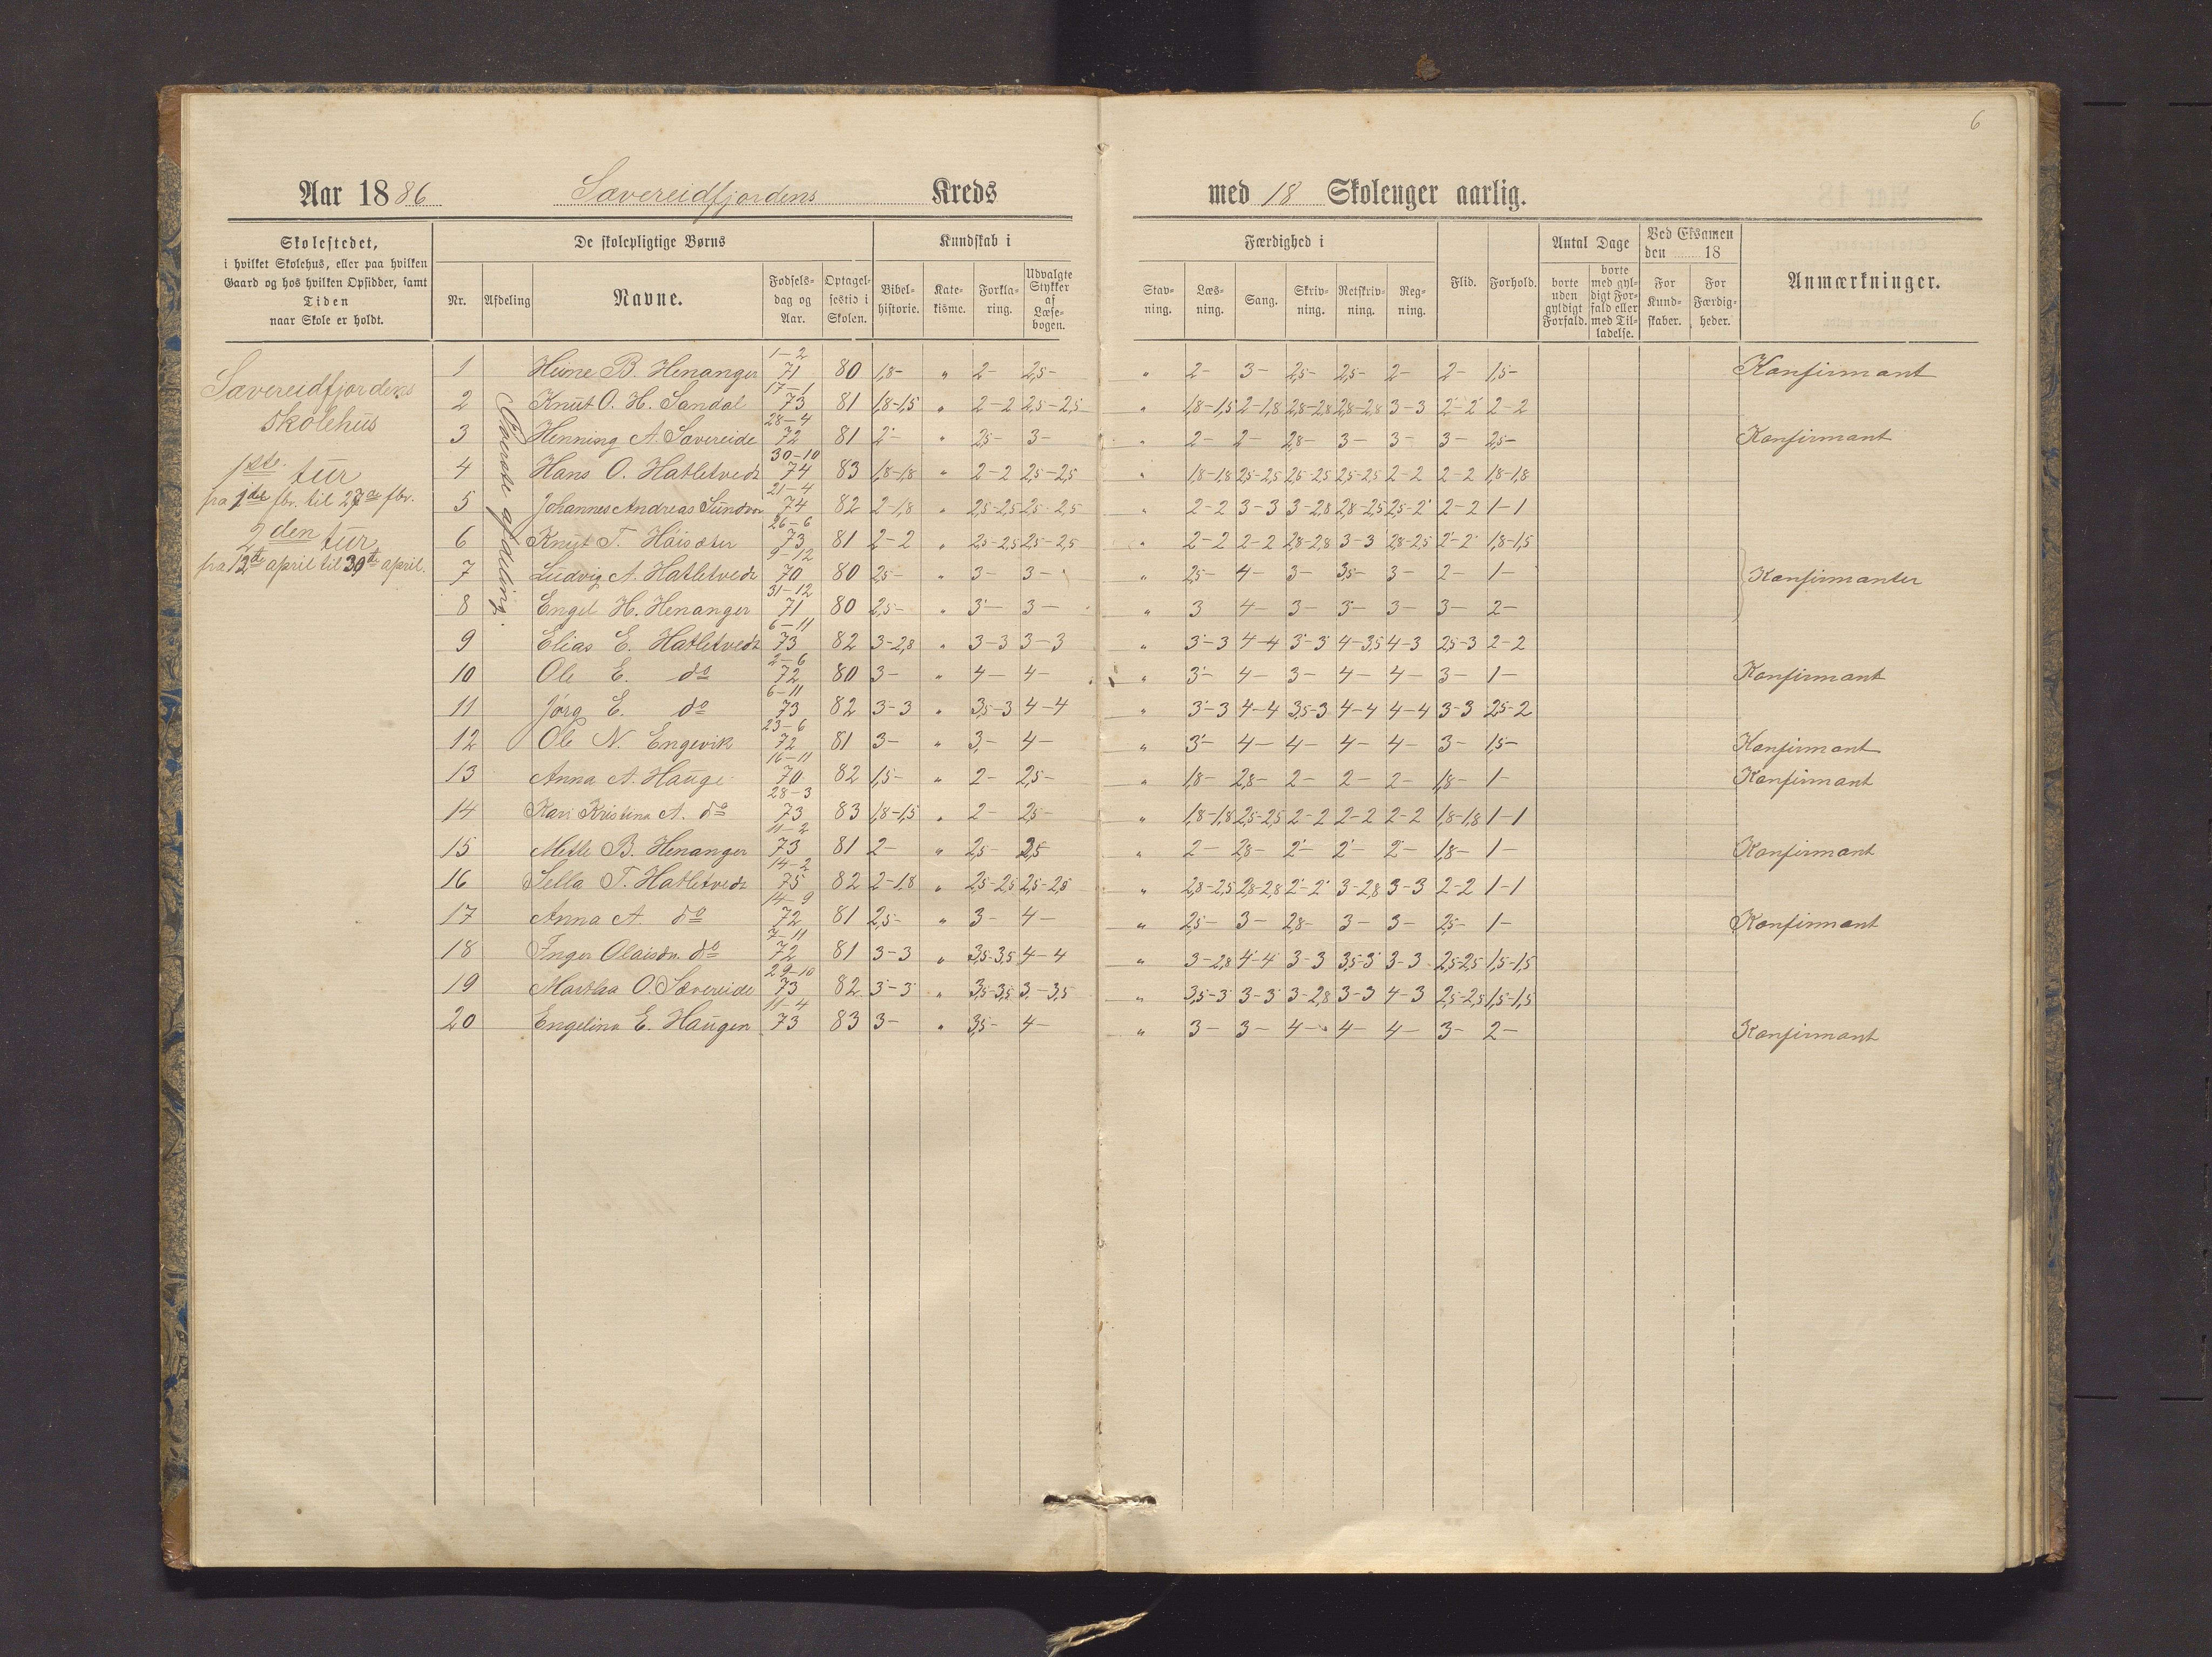 6
Aar 1886 Sævereidfjordens Kreds med 18 Skoleuger aarlig.
Skolestedet,
i hvilket Skolehus, eller paa hvilken
Gaard og hos hvilken Opsidder, samt
Tiden
naar Skole er holdt.
De skolepligtige Børns
Nr. Afdeling Navne. Fødsels-dag og Aar. Optagel-sestid i Skolen.
Kundskab i
Bibel-historie. Kate-kisme. Forkla-ring. Udvalgte Stykker af Læse-bogen.
Færdighed i
Stav-ning. Læs-ning. Sang. Skriv-ning. Retskriv-ning. Reg-ning.
Flid. Forhold.
Antal Dage
borte uden gyldigt Forfald. borte med gyl-digt For-fald eller med Til-ladelse.
Ved Eksamen den 18
For Kund-skaber. For Færdig-heder.
Anmærkninger.
Sævereidfjordens
skolehus
1ste tur
fra 1ste fbr. til 27de fbr.
2den tur
fra 13de april til 30te april.
Øverste afdeling.
1 Heine B. Henanger 1-2 71 80 1,8- " 2- 2,5- " 2- 3- 2,5- 2,5- 2- 2- 1,5- Konfirmant
2 Knut O. H. Sandal 17-1 73 81 1,8-1,5 " 2-2 2,5-2,5 " 1,8-1,5 2-1,8 2,8-2,8 2,8-2,8 3-3 2-2 2-2
3 Henning A. Sævereide 28-4 72 81 2- " 2,5- 3- " 2- 2- 2,8- 3- 3- 3- 2,5- Konfirmant
4 Hans O. Hatletvedt 30-10 74 83 1,8-1,8 " 2-2 2,5-2,5 " 1,8-1,8 2,5-2,5 2,5-2,5 2,5-2,5 2-2 2-2 1,8-1,8
5 Johannes Andreas Sundvor 21-4 74 82 2-1,8 " 2,5-2,5 2,5-2,5 " 2-2 3-3 3-2,8 2,8-2,5 2,5-2 2-2 1-1
6 Knut T. Høisæter 26-6 73 81 2-2 " 2,5-2,5 2,5-2,5 " 2-2 2-2 2,8-2,8 3-3 2,8-2,5 2-2 1,8-1,5
7 Ludvig A. Hatletvedt 9-12 70 80 2,5- " 3- 3- " 2,5- 4- 3- 3,5- 3- 2- 1- Konfirmanter
8 Engel H. Henanger 31-12 71 80 2,5- " 3- 3- " 3 4- 3- 3- 3- 3- 2-
9 Elias E. Hatletvedt 6-11 73 82 3-2,8 " 3-3 3-3 " 3-3 4-4 3-3 4-3,5 4-3 2,5-3 2-2
10 Ole E. do 2-6 72 80 3- " 4- 4- " 3- 4- 3- 4- 4- 3- 1- Konfirmant
11 Jørg E. do 6-11 73 82 3-3 " 3,5-3 4-4 " 3-3 4-4 3,5-3 4-4 4-4 3-3 2,5-2
12 Ole N. Engevik 23-6 72 81 3- " 3,- 4- " 3- 4- 4- 4- 4- 3- 1,5- Konfirmant
13 Anna A. Hauge 16-11 70 82 1,5- " 2- 2,5- " 1,8- 2,8- 2- 2- 2- 1,8- 1- Konfirmant
14 Kari Kristina A. do 28-3 73 83 1,8-1,5 " 2- 2,5- " 1,8-1,8 2,5-2,5 2-2 2-2 2-2 1,8-1,8 1-1
15 Mette B. Henanger 11-2 73 81 2- " 2,5- 2,5 " 2- 2,8- 2- 2- 2- 1,8- 1- Konfirmant
16 Sella T. Hatletvedt 14-2 75 82 2-1,8 " 2,5-2,5 2,5-2,5 " 2,8-2,5 2,8-2,8 2-2 3-2,8 3-3 2-2 1-1
17 Anna A. do 14-9 72 81 2,5- " 3- 4- " 2,5- 3- 2,8- 3- 3- 2,5- 1- Konfirmant
18 Inger Olaisdr. do 7-11 72 81 3-3 " 3,5-3,5 4-4 " 3-2,8 4-4 3-3 3,5-3 3-3 2,5-2,5 1,5-1,5
19 Martha O. Sævereide 29-10 73 82 3-3 " 3,5-3,5 3-3,5 " 3,5-3 3-3 3-2,8 3-3 4-3 2,5-2,5 1,5-1,5
20 Engelina E. Haugen 11-4 73 83 3- " 3,5- 4- " 3- 3- 4- 4- 4- 3- 2- Konfirmant